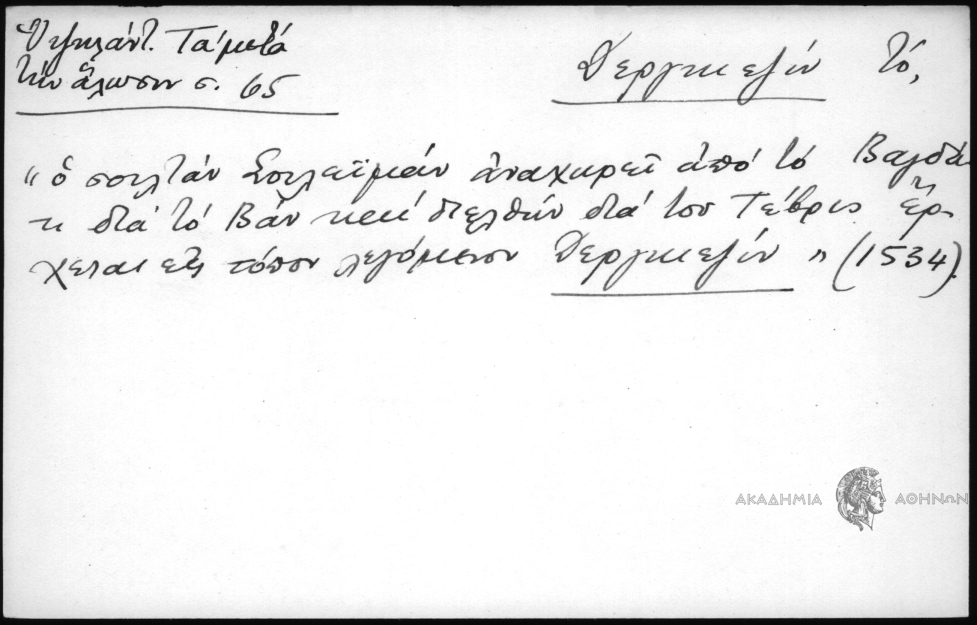 Ὑψηλάντ. Τά μετά
τήν ἅλωσιν σ. 65
Δεργκεζίν τό,
"ὁ σουλτάν Σουλεϊμάν ἀναχωρεῖ ἀπό τό Βαγδά
τι διά τό Βάν καί διελθών διά του Τέβρις ἔρ-
χεται εἰς τόπον λεγόμενον Δεργκεζίν" (1534).
ΑΚΑΔΗΜΙΑ ΑΘΗΝΩΝ